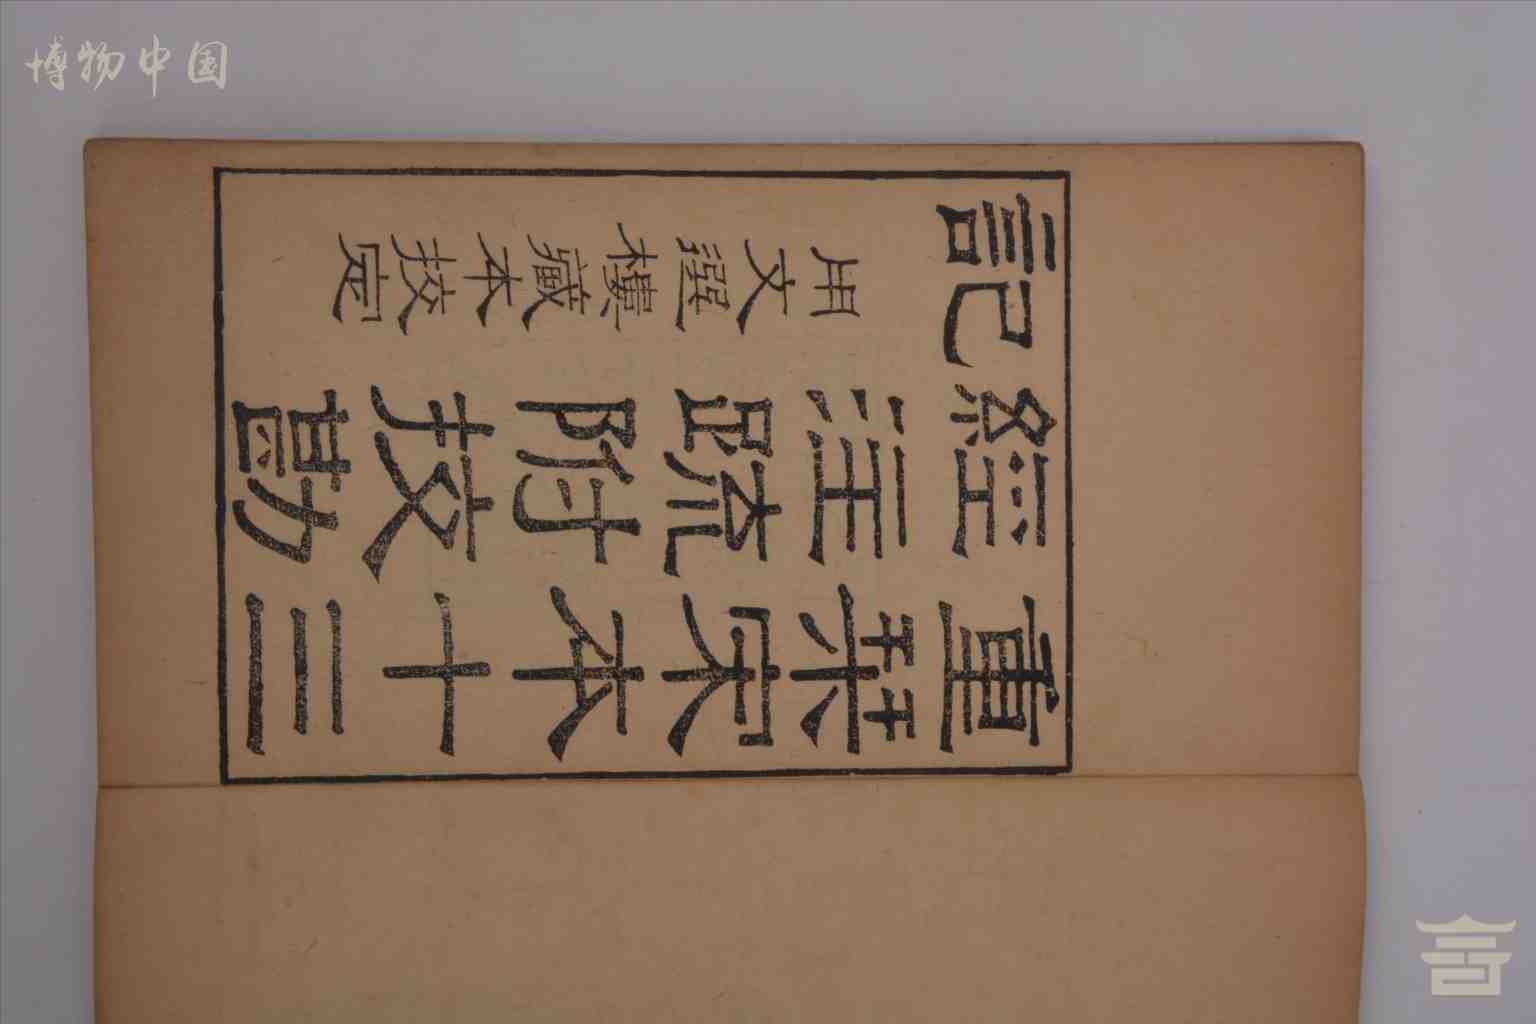 博物中国
重栞宋本十三
經注疏附挍勘
記
用文選樓藏本挍定